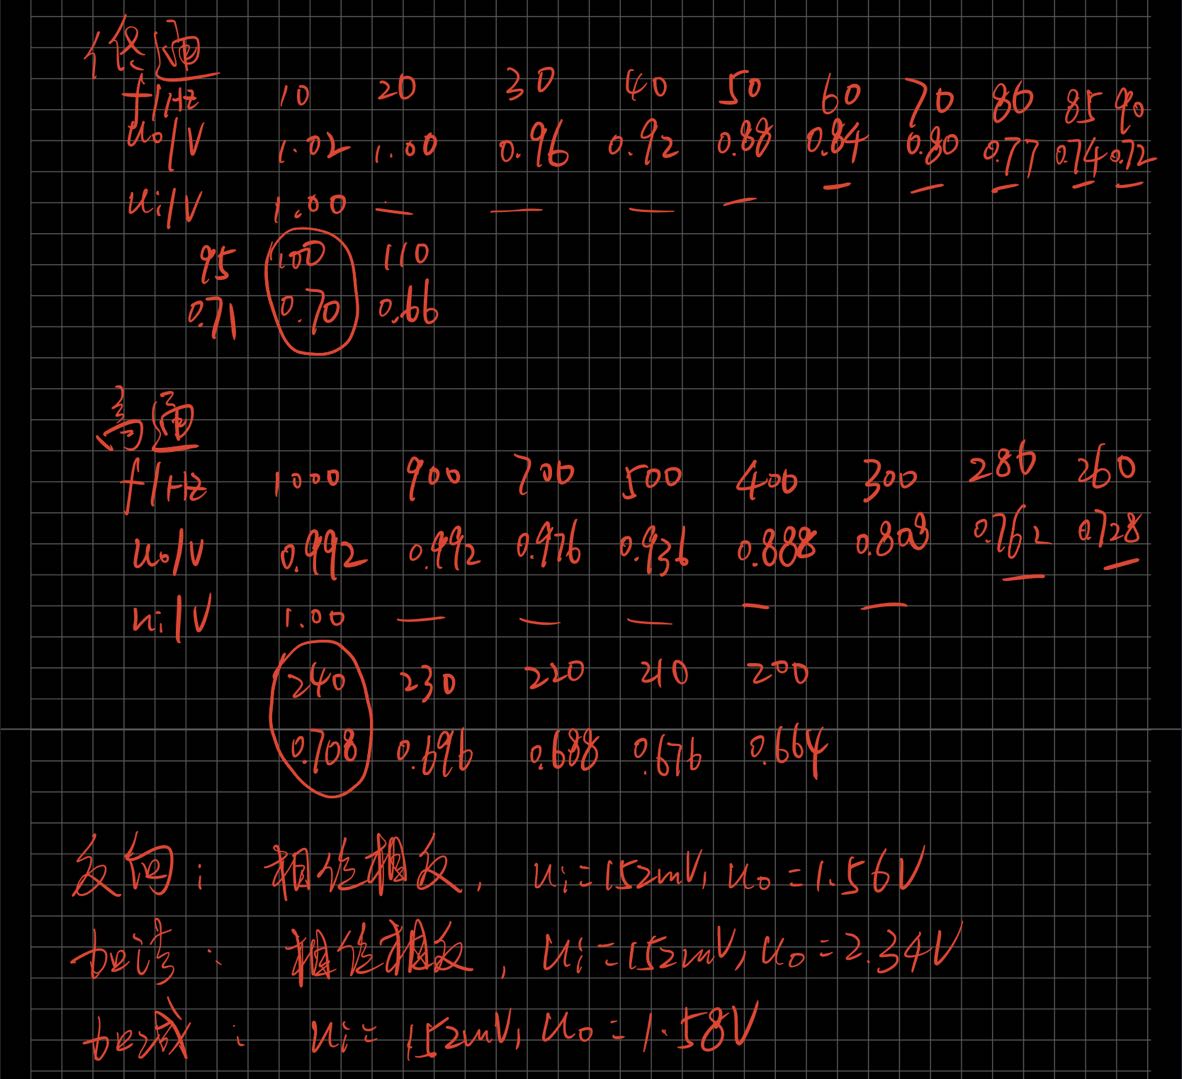 低通
f/Hz 10 20 30 40 50 60 70 80 85 90
uo/V 1.02 1.00 0.96 0.92 0.88 0.84 0.80 0.77 0.74 0.72
ui/V 1.00 — — — — — — — — —
95 100 110
0.71 0.70 0.66
高通
f/Hz 1000 900 700 500 400 300 280 260
uo/V 0.992 0.992 0.976 0.936 0.888 0.808 0.762 0.728
ui/V 1.00 — — — — — — —
240 230 220 210 200
0.708 0.696 0.688 0.676 0.664
反向: 相位相反, ui=152mV, uo=1.56V
加法: 相位相反, ui=152mV, uo=2.34V
加减: ui=152mV, uo=1.58V